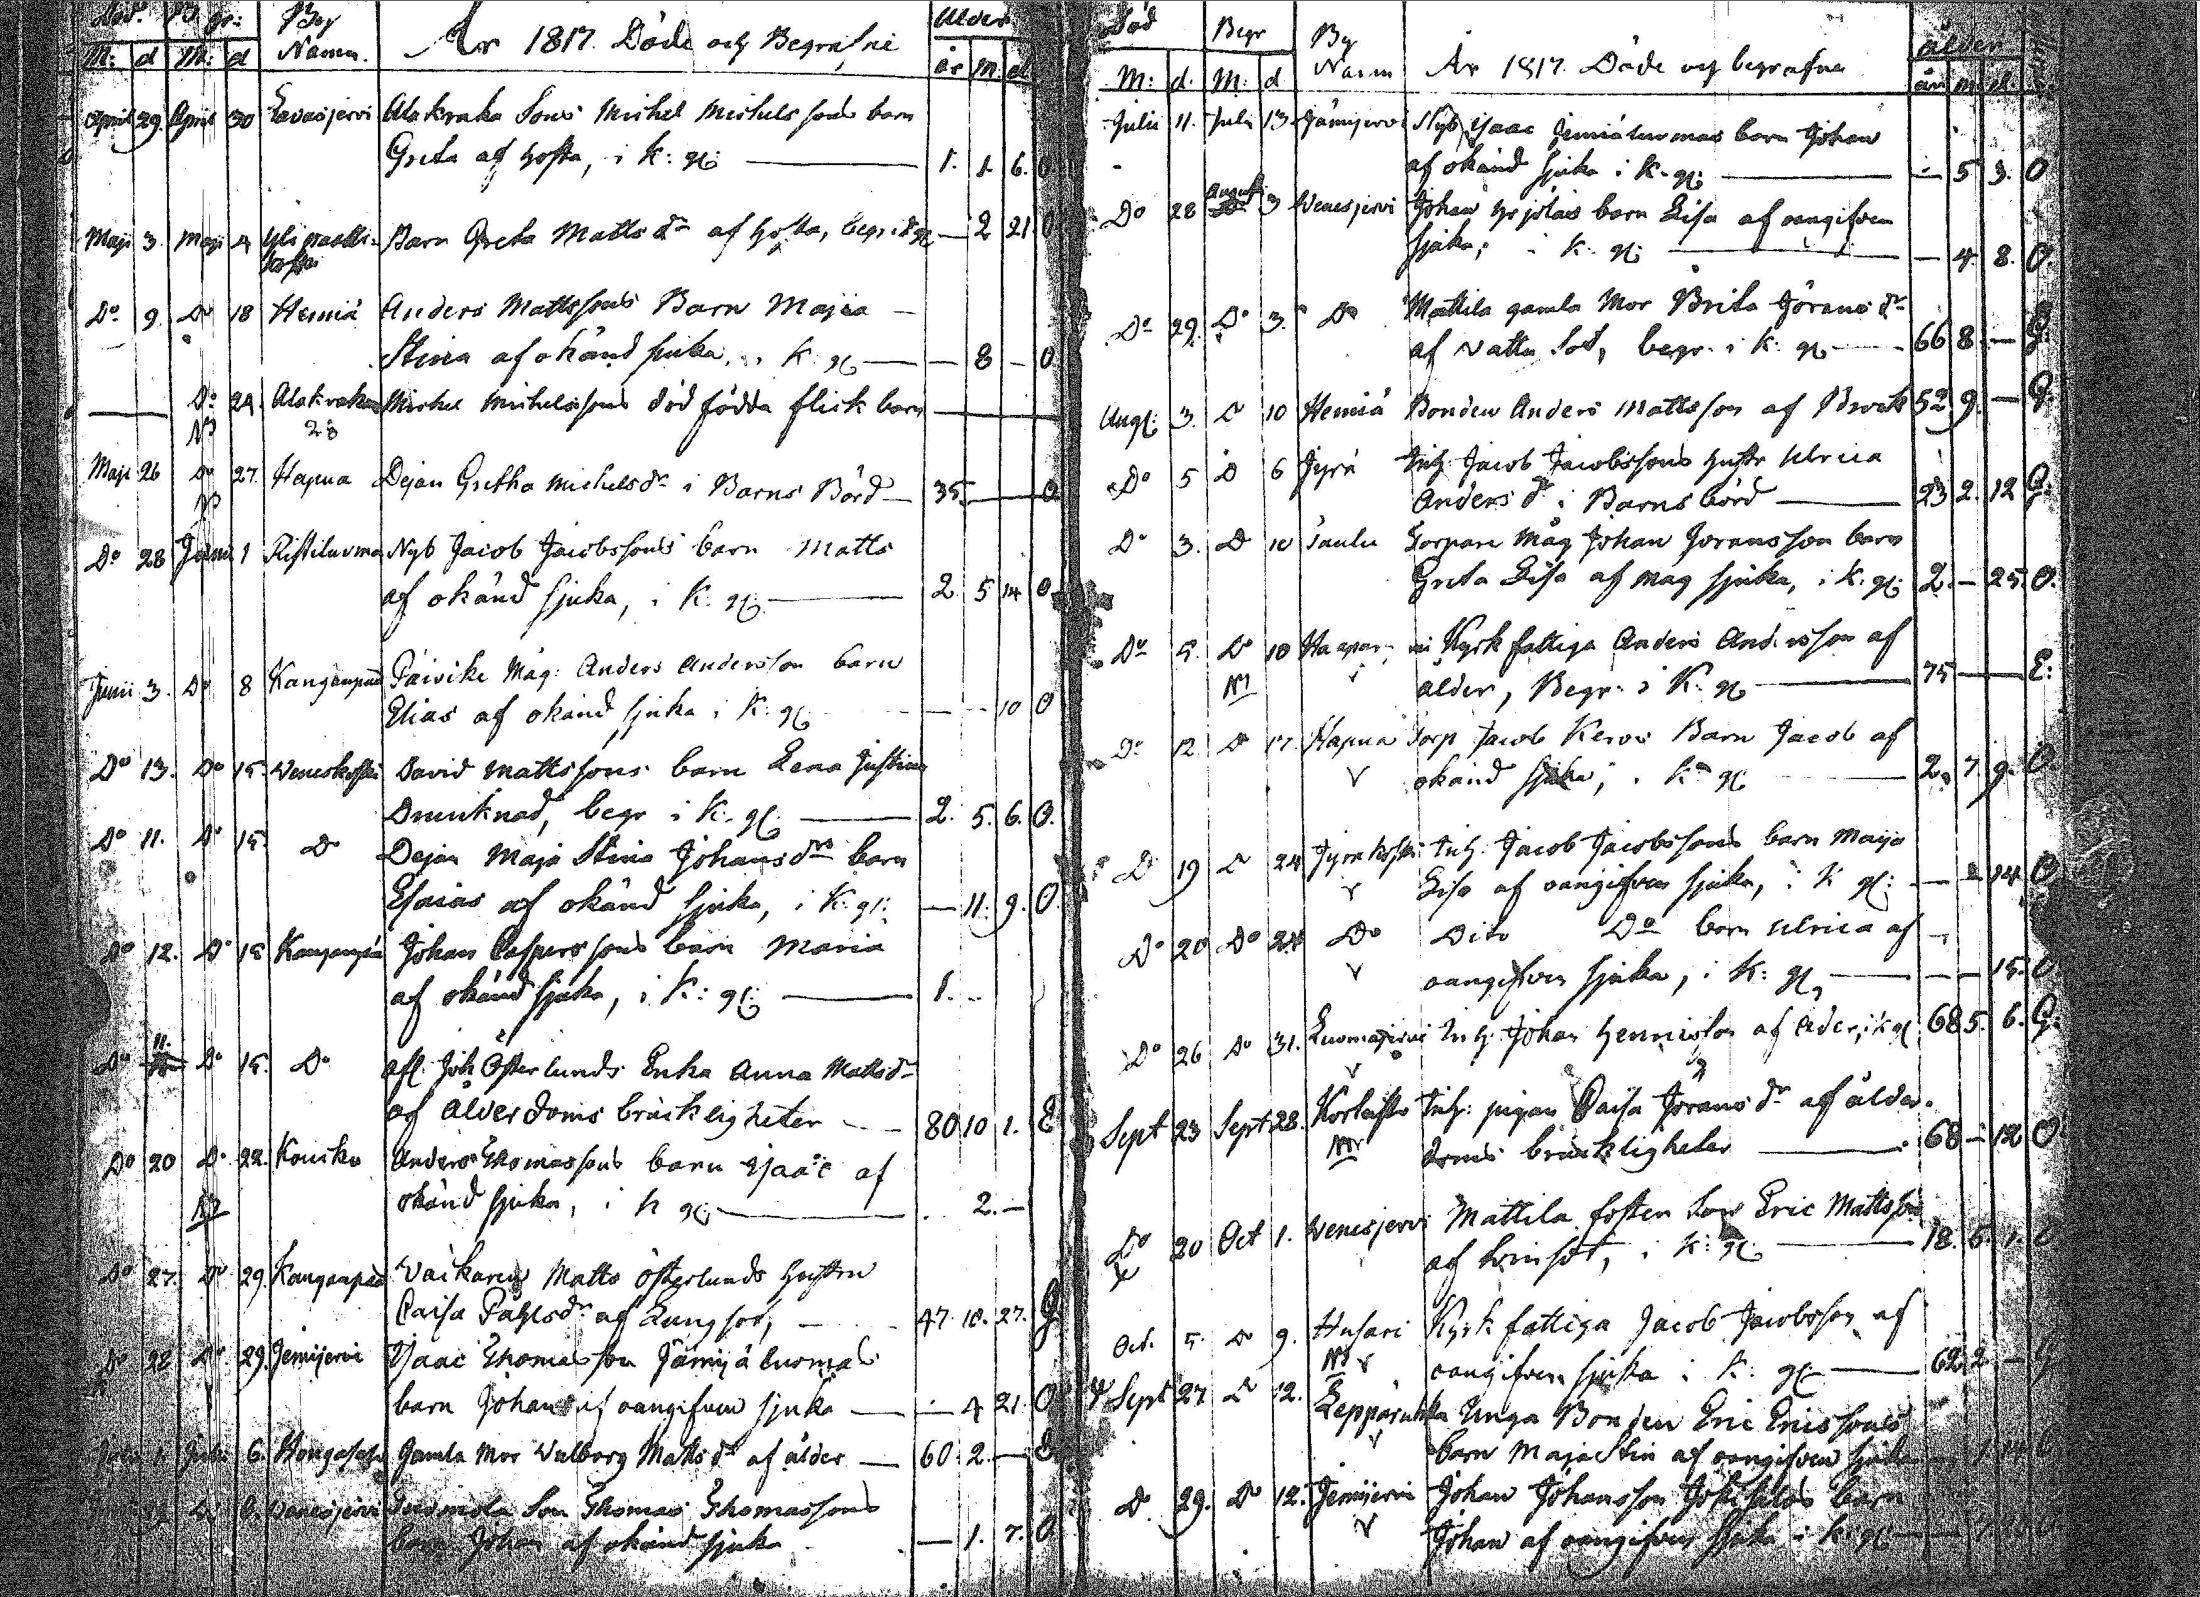 Död. Begr: By År 1817. Döde och Begrafne Ålder
M: d M: d Namn. år M. d
April 29. April 30 Alakraka Sons Michel Michelssons barn
Greta af Hosta, i K: gl: 1. 1. 6. O.
Maji 3. Maji 4 Ylipaatti- Barn Greta Matts dr af Hosta, begr: i K gl — 2 21. O
koski
Do 9. Do 18 Heiniä Anders Mattssons Barn Majea
Stina af okänd sjuka, i K: gl — 8 — O
Do 24. Alakraka Michel Michelssons död födda flick barn
28
Maji 26 Do 27. Hapua Dejan Gretha Michelsdr i Barns Börd — 35 — O
Do 28 Junii 1 Ristiluoma Nyb Jacob Jacobssons barn Matts
af okänd sjuka, i K. gl. 2. 5 14 O
Junii 3. Do 8 Kanganpää Päivike Måg: Anders Andersson barn
Elias af okänd sjuka i K: gl 10 O
Do 13. Do 15. Weneskoski David Mattssons barn Lena Justina
Drunknad, begr i K. gl. 2. 5. 6. O.
Do 11. Do 15. Do Dejan Maja Stina Johansdrs barn
Esaias af okänd sjuka, i K: gl: — 11. 9. O.
Do 12. Do 15 Kanganpää Johan Caspers sons barn Maria
af okänd sjuka, i K: gl: 1.
Do 11. Do 15. Do afl. Joh Österlunds Enka Anna Mattsdr
af Ålderdoms bräckligheter 80 10 1. E
Do 20 Do 22. Kouiku Anders Thomassons barn Isaac af
okänd sjuka, i K gl: 2. —
Do 27. Do 29. Kanganpää Matts Österlunds hustru
Caisa Påhlsdr af Lungsot, 47. 10. 27. G.
Do 22 Do 29. Jemijervi Isaac Thomasson Jämijä luomas
barn Johan af oangifven sjuka — 4 21. O
Julii 1. Julii 6. Gamla Mor Walborg Mattsdr af ålder — 60. 2. —
Son Thomas Thomassons
barn Johan af okänd sjuka — 1. 7. O
Död Begr By År 1817. Döde och begrafne ålder
M: d. M: d Namn år m d.
Julii 11. Julii 13. Jämijervi Nyb Isaac Jemiäluomas barn Johan
af okänd sjuka i K. gl: — 5 3. O
Do 28 Augusti 3 Wenesjervi Johan Yrjöläs barn Lisa af oangifven
sjuka, i K. gl: — 4. 8. O.
Do 29. Do 3. Do Mattila gamla Mor Brita Jörans dr
af vattu Sot, begr. i K: gl — 66 8. — G.
Aug: 3. Do 10 Heiniä Bonden Anders Mattsson af Bråck 52 9. — G.
Do 5 Do 6 Jyrä Inh: Jacob Jacobssons hustr Ulrica
Anders dr i Barnsbörd 23 2. 12 G.
Do 3. Do 10 Torpare Måg Johan Joransson barn
Greta Lisa af mag sjuka, i K: gl: 2. — 25. O.
Do 5. Do 10 Kyrk fattiga Anders Andersson af
ålder, Begr: i K: gl 75 — E:
Do 12. Do 17 Hapua Torp Jacob Kerois Barn Jacob af
okänd sjuka, i K: gl: 2. 7. 9. O
Do 19 Do 24 Jyräkoski Inh: Jacob Jacobssons barn Maija
Lisa af oangifven sjuka, i K gl: 14. O
Do 20 Do 24. Do Dito Do barn Ulrica af
oangifven sjuka, i K: gl — — 15. O
Do 26 Do 31. Luomajervi Inh: Johan Hennisson af ålder, i K gl 68 5. 6. G.
Sept 23 Sept 28. Inh: pigan Caisa Jörans dr af ålder-
doms bräckligheter 68 — 12 O
Do 20 Oct 1. Wenesjervi Mattila foster Son Eric Mattsson
af , i K: gl: 18. 6. 1.
Oct. 5. Do 9. Husari Kyrk fattiga Jacob Jacobsson af
oangifven sjuka i K: gl 62 2. — G
Sept 27 Do 12. Unga Bonden Eric Ericssons
barn Maja Stin af oangifven sjuka
Do 29. Do 12. Jemijervi Johan Johansson barn
Johan af oangifven sjuka i K: gl